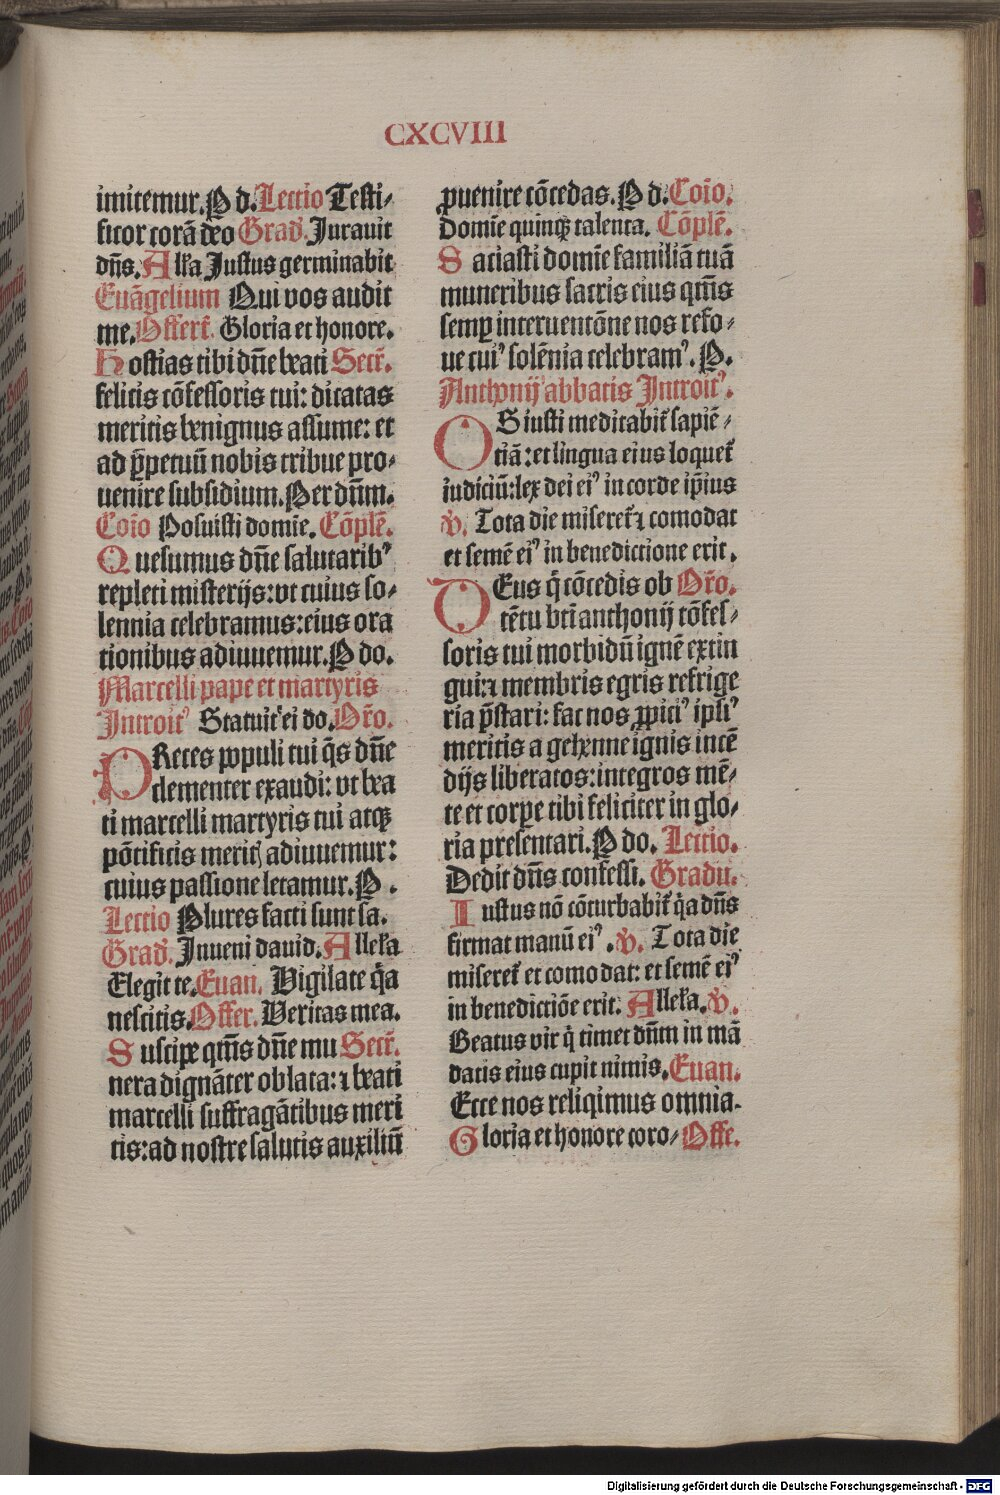 CXCVIII
imitemur. P d. Lectio Testi⸗
ficor corā deo Grad̄. Jurauit
dn̄s. Alľa Justus germinabit
Euāgelium Qui vos audit
me. Offert̄. Gloria et honore.
Hostias tibi dn̄e beati Secr̄.
felicis cōfessoris tui: dicatas
meritis benignus assume: et
ad ꝑpetuū nobis tribue pro⸗
uenire subsidium. Per dn̄m.
Cōio Posuisti domīe. Cōplē.
Quesumus dn̄e salutaribꝰ
repleti misterijs: vt cuius so⸗
lennia celebramus: eius ora
tionibus adiuuemur. P do.
Marcelli pape et martyris
Introitꝰ Statuit ei do. Or̄o.
PReces populi tui q̄s dn̄e
clementer exaudi: vt bea
ti marcelli martyris tui atqꝫ
pōtificis merit̄ adiuuemur:
cuius passione letamur. P.
Lectio Plures facti sunt sa.
Grad̄. Inueni dauid. Alleľa
Elegit te. Euan. Vigilate q̄a
nescitis. Offer. Veritas mea.
Suscipe qm̄s dn̄e mu Secr̄.
nera dignāter oblata: ⁊ beati
marcelli suffragātibus meri
tis: ad nostre salutis auxiliū
ꝓuenire cōcedas. P d. Cōio.
Domīe quinqꝫ talenta. Cōplē.
Saciasti domīe familiā tuā
muneribus sacris eius qm̄s
semꝑ interuentōne nos refo⸗
ue cuiꝰ solēnia celebramꝰ. P.
Anthonij abbatis Introitꝰ.
OS iusti meditabit̄ sapiē⸗
tiā: et lingua eius loquet̄
iudiciū: lex dei eiꝰ in corde ip̄ius
v̄. Tota die miseret̄ ⁊ comodat
et semē eiꝰ in benedictione erit.
DEus q̄ cōcedis ob Or̄o.
tētu bt̄i anthonij cōfes⸗
soris tui morbidū ignē extin
gui: ⁊ membris egris refrige
ria p̄stari: fac nos ꝓpiciꝰ ipsiꝰ
meritis a gehenne ignis incē
dijs liberatos: integros mē⸗
te et corpe tibi feliciter in glo⸗
ria presentari. P do. Lectio.
Dedit dn̄s confessi. Gradu.
Iustus nō cōturbabit̄ q̄a dn̄s
firmat manū eiꝰ. v̄. Tota die
miseret̄ et comodat: et semē eiꝰ
in benedictiōe erit. Alleľa. v̄.
Beatus vir q̄ timet dn̄m in mā
datis eius cupit nimis. Euan.
Ecce nos reliqimus omnia.
Gloria et honore coro⸗ Offe.
Digitalisierung gefördert durch die Deutsche Forschungsgemeinschaft - DFG